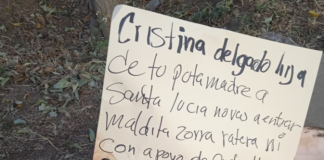 Cristina delgado hija
de tu putamadre a
Santa lucia novas a entrar
maldita zorra ratera ni
con apoyo de